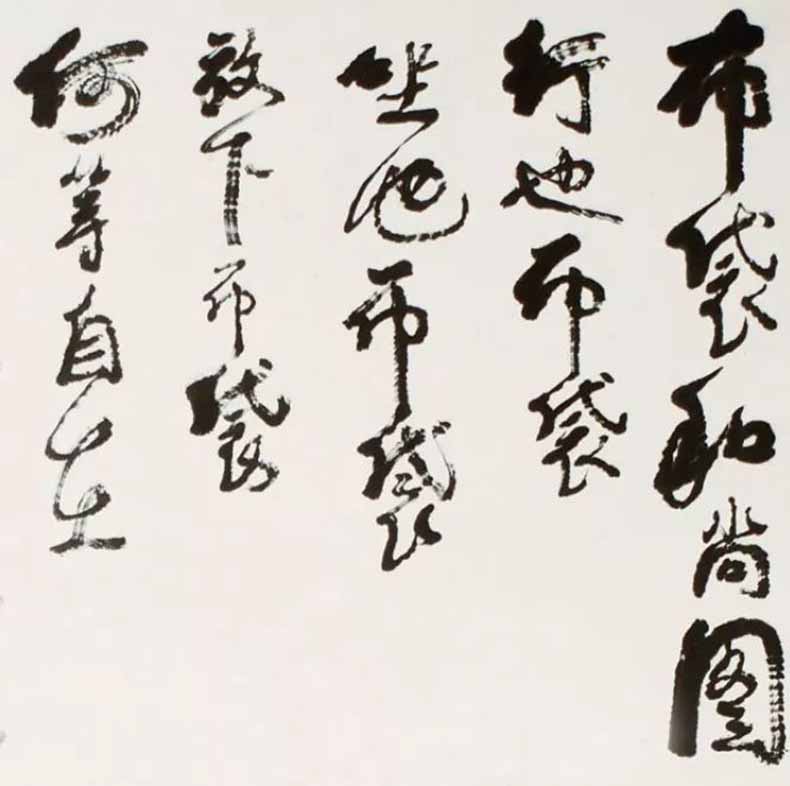 布袋和尚图
行也布袋
坐也布袋
放下布袋
何等自在